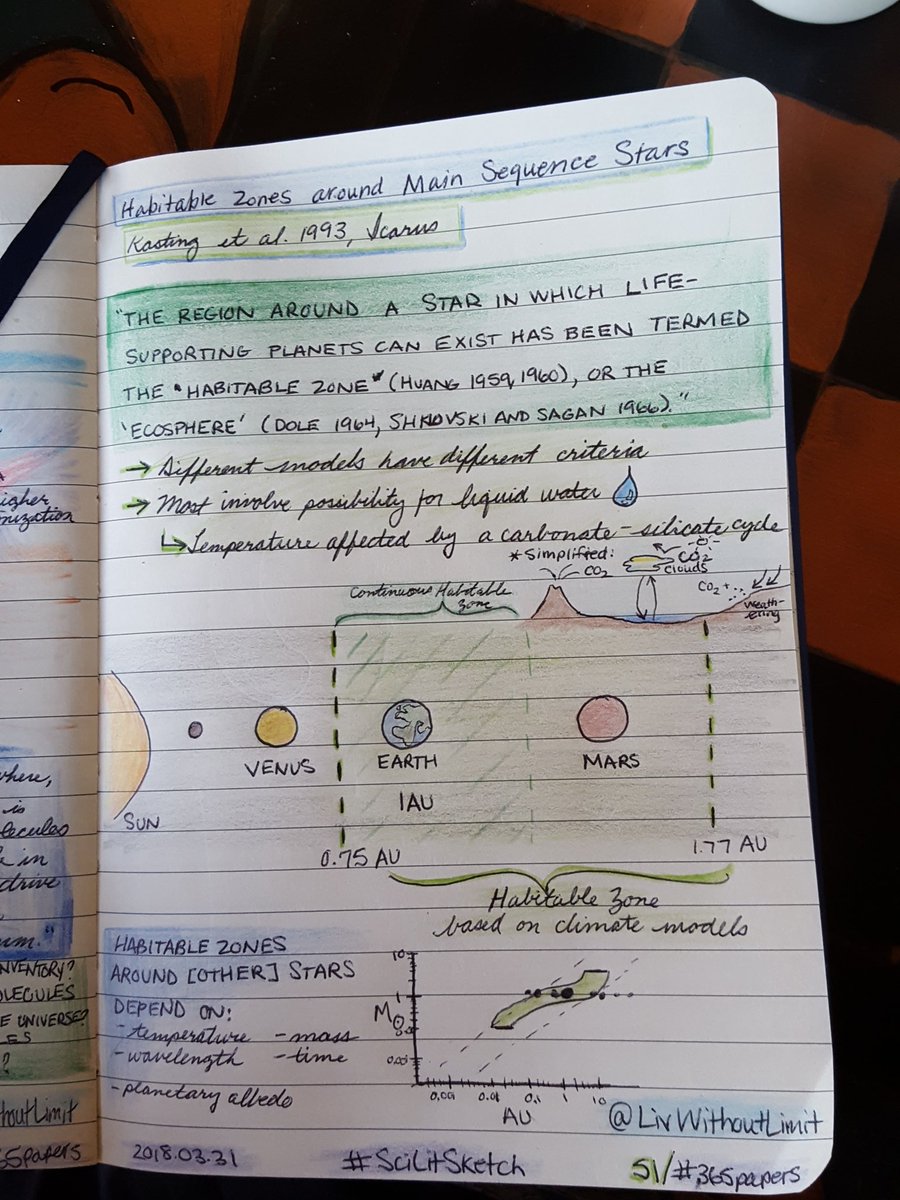 Habitable Zones around Main Sequence Stars
Kasting et al. 1993, Icarus
"THE REGION AROUND A STAR IN WHICH LIFE-
SUPPORTING PLANETS CAN EXIST HAS BEEN TERMED
THE "HABITABLE ZONE" (HUANG 1959, 1960), OR THE
'ECOSPHERE' (DOLE 1964, SHKLOVSKI AND SAGAN 1966)."
→ Different models have different criteria
→ Most involve possibility for liquid water
↳ Temperature affected by a carbonate-silicate cycle
* Simplified:
CO2
CO2
clouds
CO2 +
weath-
ering
Continuous Habitable
Zone
SUN
VENUS
EARTH
1AU
MARS
0.75 AU
1.77 AU
Habitable Zone
based on climate models
HABITABLE ZONES
AROUND [OTHER] STARS
DEPEND ON:
- temperature - mass
- wavelength - time
- planetary albedo
10
1
M
0.001 0.01 0.1 1 10
AU
@LivWithoutLimit
2018.03.31
#SciLitSketch
51/#365papers
igher
nization
where,
is
lecules
in
drive
um."
INVENTORY?
OLECULES
E UNIVERSE?
ES
?
houtLimit
65papers